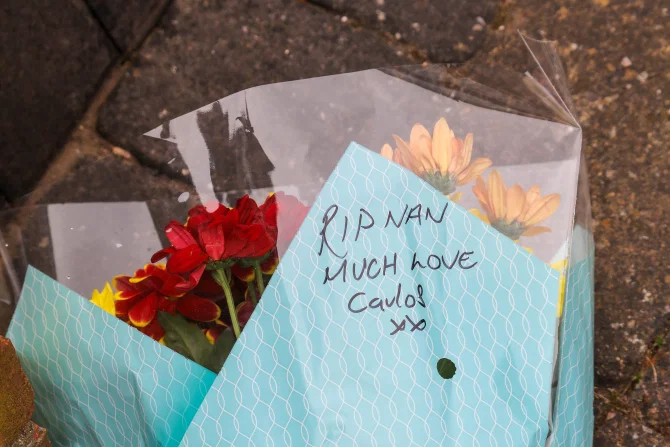 RIP NAN
MUCH LOVE
Carlos
xx